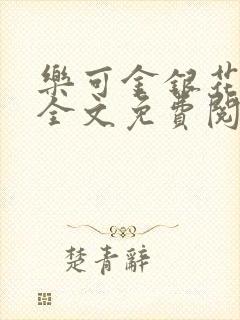 樂可金銀花
全文免費閱
楚青辭